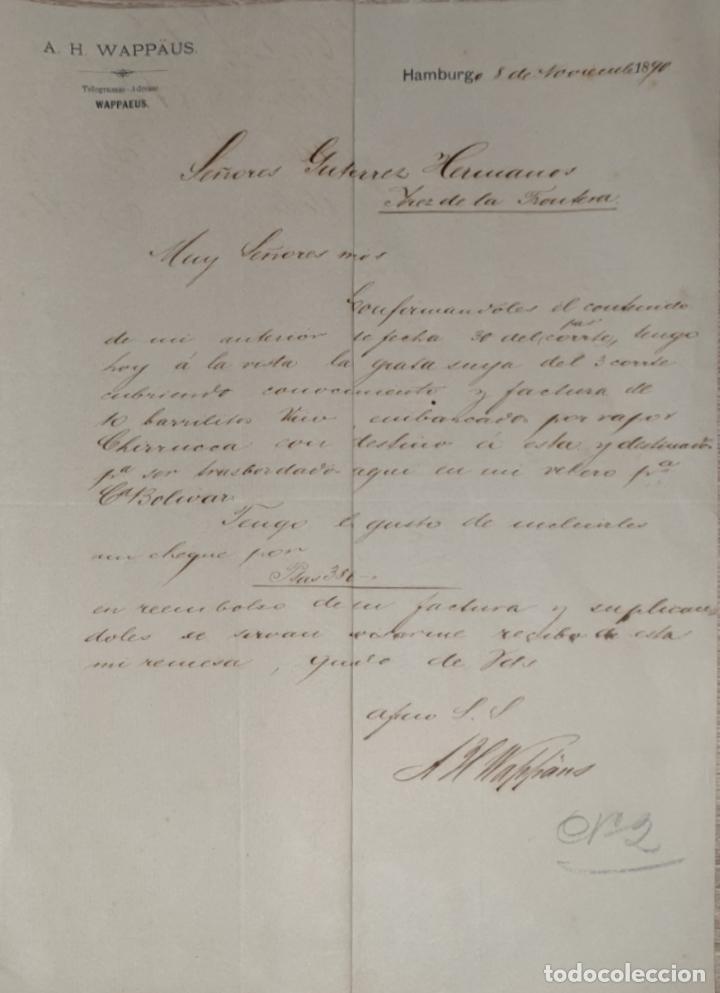 A. H. WAPPÄUS.
Telegramm-Adresse
WAPPAEUS.
Hamburgo 8 de Noviembre 1890
Señores Guterrez Hermanos
Jerez de la Frontera
Muy Señores mios
Confirmandoles el contenido
de mi anterior de fecha 30 del corrte, pas tengo
hoy á la vista la grata suya del 3 corrte
cubriendo conocimiento y factura de
10 barrilitos Vino embarcados por vapor
Chirrucca con destino á esta y destinados
pa ser trasbordados aqui en mi velero pa
Cd Bolivar
Tengo el gusto de incluirles
un cheque por
Ptas 380-
en reembolso de su factura y suplican
doles se sirvan avisarme recibo de esta
mi remesa, quedo de Vds
afmo S. S
A H Wappäus
No 2
todocoleccion
todocoleccion.net